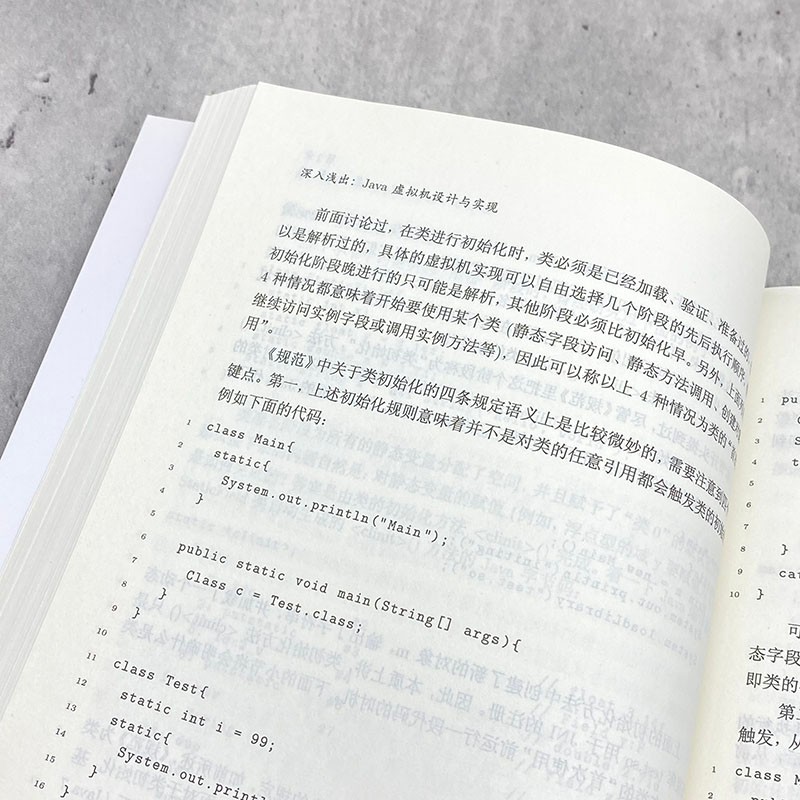 深入浅出：Java 虚拟机设计与实现
前面讨论过，在类进行初始化时，类必须是已经加载、验证、准备过的
以是解析过的，具体的虚拟机实现可以自由选择几个阶段的先后执行顺序，
初始化阶段晚进行的只可能是解析，其他阶段必须比初始化早。另外，上面
4 种情况都意味着开始要使用某个类 (静态字段访问、静态方法调用、创建
继续访问实例字段或调用实例方法等)，因此可以称以上 4 种情况为类的“首
用”。
《规范》中关于类初始化的四条规定语义上是比较微妙的，需要注意到
键点。第一，上述初始化规则意味着并不是对类的任意引用都会触发类的初始
例如下面的代码：
1 class Main{
2 static{
3 System.out.println("Main");
4 }
5
6 public static void main(String[] args){
7 Class c = Test.class;
8 }
9 }
10
11 class Test{
12 static int i = 99;
13 static{
14 System.out.println
15 }
16 }
1 pu
2 S
3 S
4 t
5
6
7
8 }
9 cat
10 }
可
态字段
即类的
第二
触发，从
1 class M